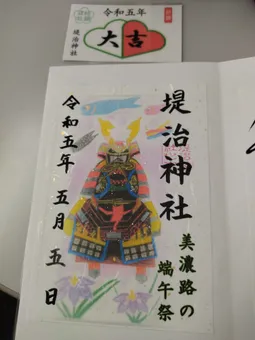 令和五年
大吉
堤治神社
堤治神社
美濃路の
端午祭
令和五年 五月五日